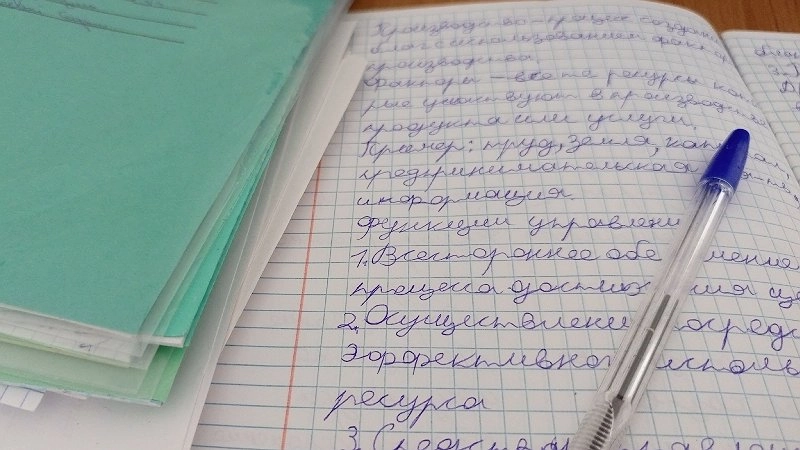 Производство - процесс создани
благ с использованием фактор
производства.
Факторы - все те ресурсы кото
рые участвуют в производстве
продукта или услуги.
Пример: труд, земля, капитал,
предпринимательская
информация.
Функции управлени
1. Всестороннее обе
процесса достижения
2. Осуществлени
эффективного исполь
ресурса
3.